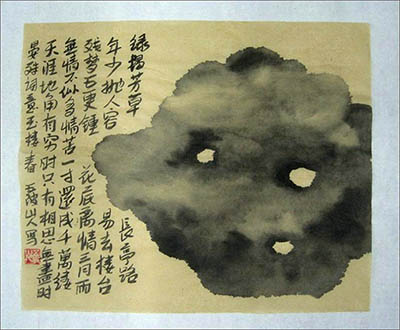 綠楊芳草 長亭路
年少抛人容 易去楼台
残梦五更鍾 花底離情三月雨
無情不似多情苦一寸還成千萬縷
天涯地角有穷时只有相思無盡时
晏殊詞意玉楼春 山人写